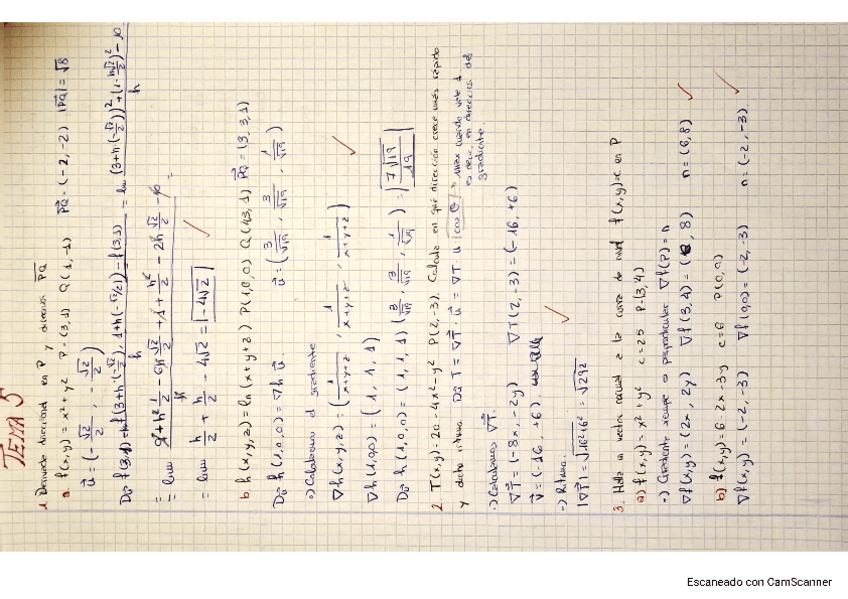 TEMA 5
1. Derivada direccional en P y dirección PQ
a. f(x,y) = x² + y²   P = (3,1)   Q(1,-1)   PQ = (-2,-2)   |PQ| = √8
u = (-√2/2, -√2/2)
= lím
= lím h/2 + h/2 - 4√2 = -4√2
b h(x,y,z) = ln(x+y+z)   P(1,0,0)   Q(4,3,1)   PQ = (3,3,1)
Dū h(1,0,0) = ∇h ū.   ū = (3/√19, 3/√19, 1/√19)
o) Calculamos el gradiente
∇h(x,y,z) = (1/x+y+z, 1/x+y+z, 1/x+y+z)
∇h(1,0,0) = (1, 1, 1)
Dū h(1,0,0) = (1,1,1)(3/√19, 3/√19, 1/√19) = 7√19/19
2. T(x,y) = 20 - 4x² - y²   P(2,-3). Calcula en qué dirección crece más rápido
y dicho ritmo. Dū T = ∇T · ū = ∇T · u |cos θ| → Max cuando vale 1
es decir, en dirección del
gradiente.
·) Calculamos ∇T.
∇T = (-8x, -2y)   ∇T(2,-3) = (-16, +6)
v = (-16, +6).
→ Ritmo.
|∇T| = √16²+6² = √292
3. Halla un vector normal a la curva de nivel f(x,y)=c en P
a) f(x,y) = x² + y²   c = 25   P = (3,4)
→ Gradiente siempre es perpendicular ∇f(P) = n
∇f(x,y) = (2x, 2y)   ∇f(3,4) = (6, 8)   n = (6,8)
b) f(x,y) = 6 - 2x - 3y   c = 6   P(0,0)
∇f(x,y) = (-2, -3)   ∇f(0,0) = (-2, -3)   n = (-2, -3)
Escaneado con CamScanner